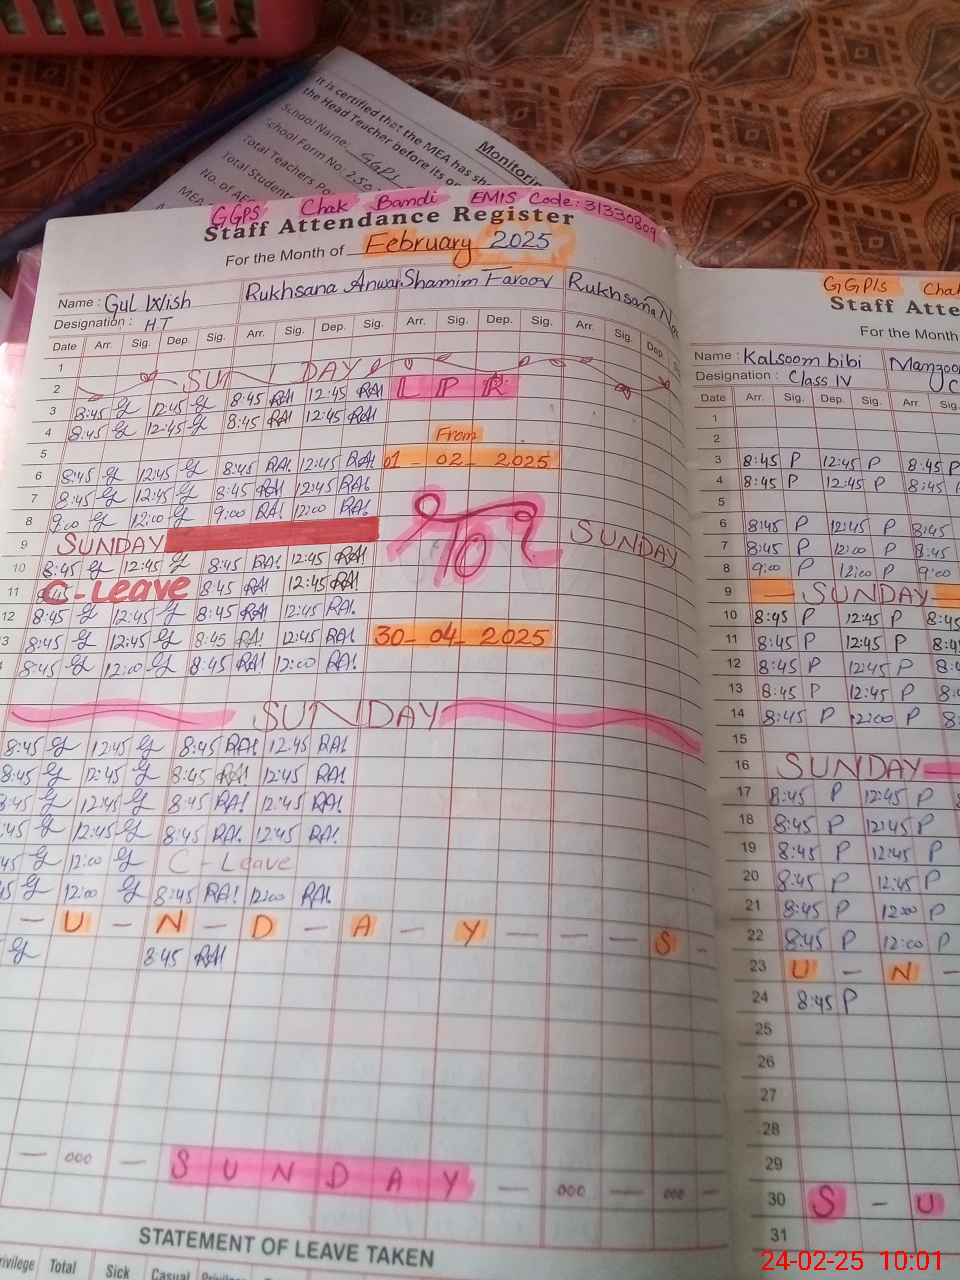 Monitorin
It is certified that the MEA has sh
the Head Teacher before its
School Name: GGPS
School Form No.
Total Teachers Po
Total Student
No. of AE
MEA
GGPS Chak Bandi EMIS Code: 31330809
Staff Attendance Register
For the Month of February 2025
Name: Gul Wish Rukhsana Anwar Shamim Farooq Rukhsana
Designation: HT
Date Arr. Sig. Dep. Sig. Arr. Sig. Dep. Sig. Arr. Sig. Dep. Sig. Arr. Sig. Dep.
1
2 SUNDAY
3 8:45 12:45 8:45 RA! 12:45 RA! L P R
4 8:45 12:45 8:45 RA! 12:45 RA!
5 From
6 8:45 12:45 8:45 RA! 12:45 RA! 01-02-2025
7 8:45 12:45 8:45 RA! 12:45 RA!
8 9:00 12:00 9:00 RA! 12:00 RA! To
9 SUNDAY SUNDAY
10 8:45 12:45 8:45 RA! 12:45 RA!
11 C-Leave 8:45 RA! 12:45 RA!
12 8:45 12:45 8:45 RA! 12:45 RA!
3 8:45 12:45 8:45 RA! 12:45 RA! 30-04-2025
8:45 12:00 8:45 RA! 12:00 RA!
SUNDAY
8:45 12:45 8:45 RA! 12:45 RA!
8:45 12:45 8:45 RA! 12:45 RA!
8:45 12:45 8:45 RA! 12:45 RA!
:45 12:45 8:45 RA! 12:45 RA!
45 12:00 C-Leave
45 12:00 8:45 RA! 12:00 RA!
- U - N - D - A - Y - - - S -
8:45 RA!
- 000 - SUNDAY - 000 - 000 -
STATEMENT OF LEAVE TAKEN
rivilege Total Sick Casual
GGP/S Chak
Staff Atte
For the Month
Name: Kalsoom bibi Manzoo
Designation: Class IV C
Date Arr. Sig. Dep. Sig. Arr. Sig.
1
2
3 8:45 P 12:45 P 8:45 P
4 8:45 P 12:45 P 8:45
5
6 8:45 P 12:45 P 8:45
7 8:45 P 12:00 P 8:45
8 9:00 P 12:00 P 9:00
9 - SUNDAY -
10 8:45 P 12:45 P 8:45
11 8:45 P 12:45 P 8:4
12 8:45 P 12:45 P 8:4
13 8:45 P 12:45 P 8:
14 8:45 P 12:00 P 8:
15
16 SUNDAY -
17 8:45 P 12:45 P
18 8:45 P 12:45 P
19 8:45 P 12:45 P
20 8:45 P 12:45 P
21 8:45 P 12:00 P
22 8:45 P 12:00 P
23 U - N -
24 8:45 P
25
26
27
28
29
30 S - U
31
24-02-25 10:01